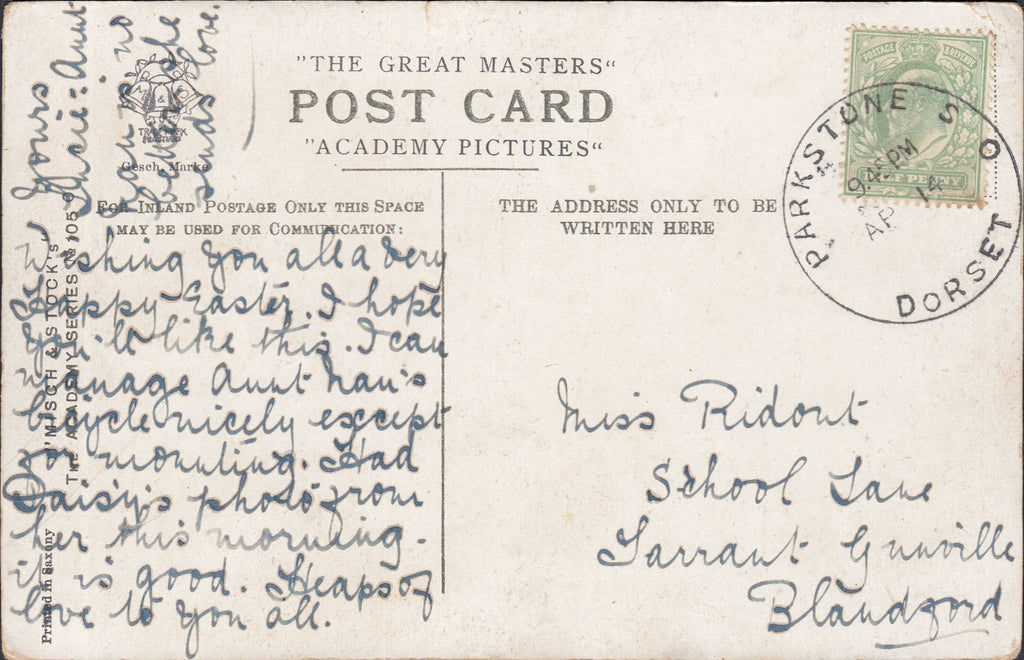 "THE GREAT MASTERS"
POST CARD
"ACADEMY PICTURES"
Gesch. Marke
FOR INLAND POSTAGE ONLY THIS SPACE
MAY BE USED FOR COMMUNICATION:
THE ADDRESS ONLY TO BE
WRITTEN HERE
POSTAGE
PARKSTONE S O
9.45 PM
AP 14
DORSET
Wishing you all a very
Happy Easter. I hope
you'll like this. I can
manage Aunt Nan's
bicycle nicely except
for mounting. Had
Daisy's photo from
her this morning.
it is good. Heaps of
love to you all.
Yours
Aunt
no
she
sends love.
Miss Ridout
School Lane
Tarrant Gunville
Blandford
MISCH & STOCK'S
THE ACADEMY SERIES No 105
Printed in Saxony